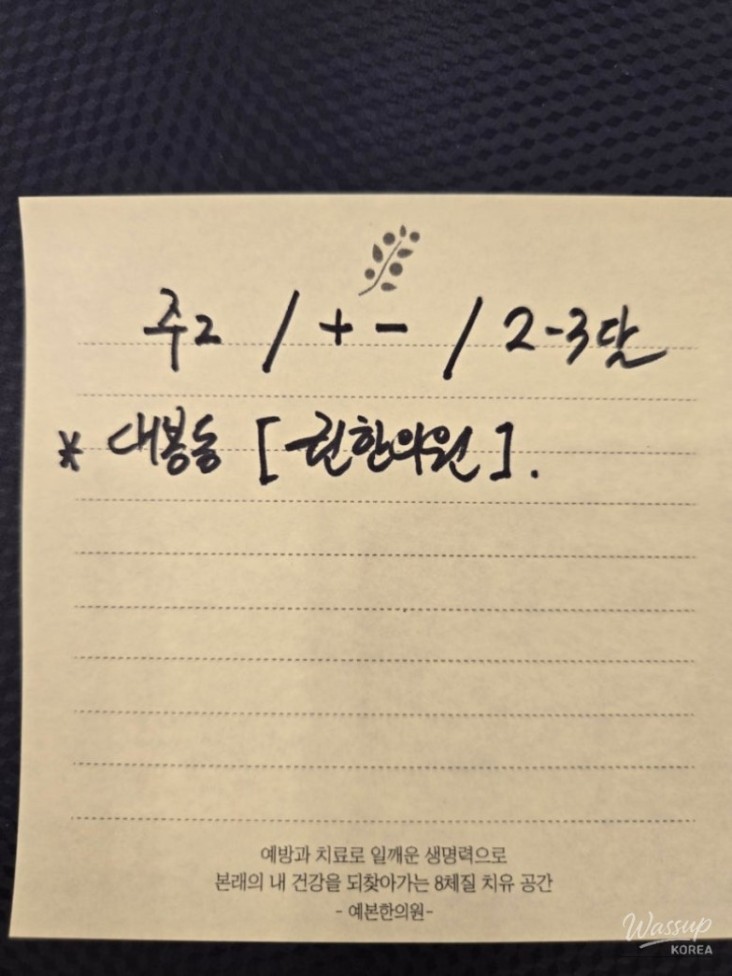 주2 / + - / 2-3달
* 대봉동 [권한의원].
예방과 치료로 일깨운 생명력으로
본래의 내 건강을 되찾아가는 8체질 치유 공간
- 예본한의원-
Wassup
KOREA